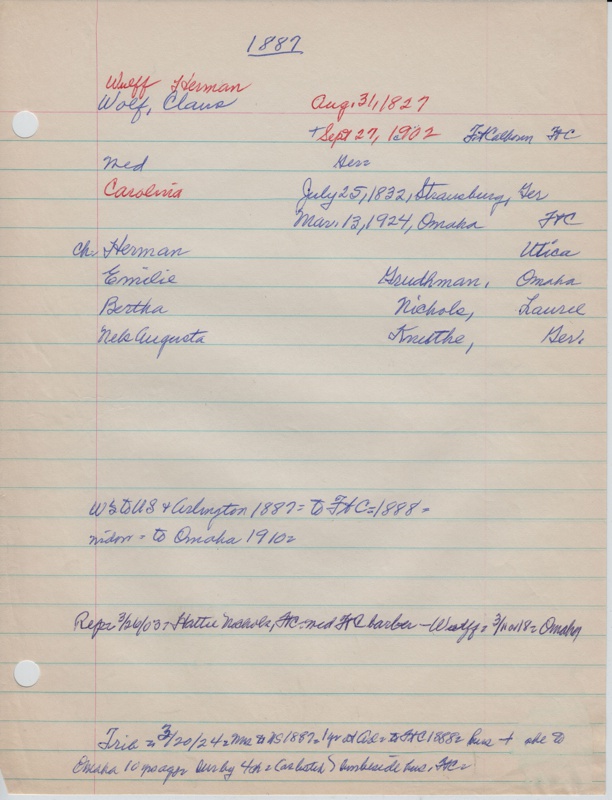 1887
Wulff Herman
Wolf, Claus Aug. 31, 1827
+ Sept 27, 1902 Ft Calhoun FtC
Med Ger=
Carolina July 25, 1832, Strausburg, Ger
Mar. 13, 1924, Omaha FtC
ch. Herman Utica
Emilie Grudhman, Omaha
Bertha Nichols, Laurel
Nels Augusta Knuthe, Ger.
W's to US & Arlington 1887= to FtC=1888=
widow = to Omaha 1910=
Rep= 3/26/03= Hattie Nichols, FtC= med FtC barber - Wulff= Omaha
Trib = 3/20/24= Mrs to US 1887= 1 yr at Arl = to FtC 1888= hus + she to
Omaha 10 yrs ago= sur by 4 ch = (as listed) bur beside hus, FtC=